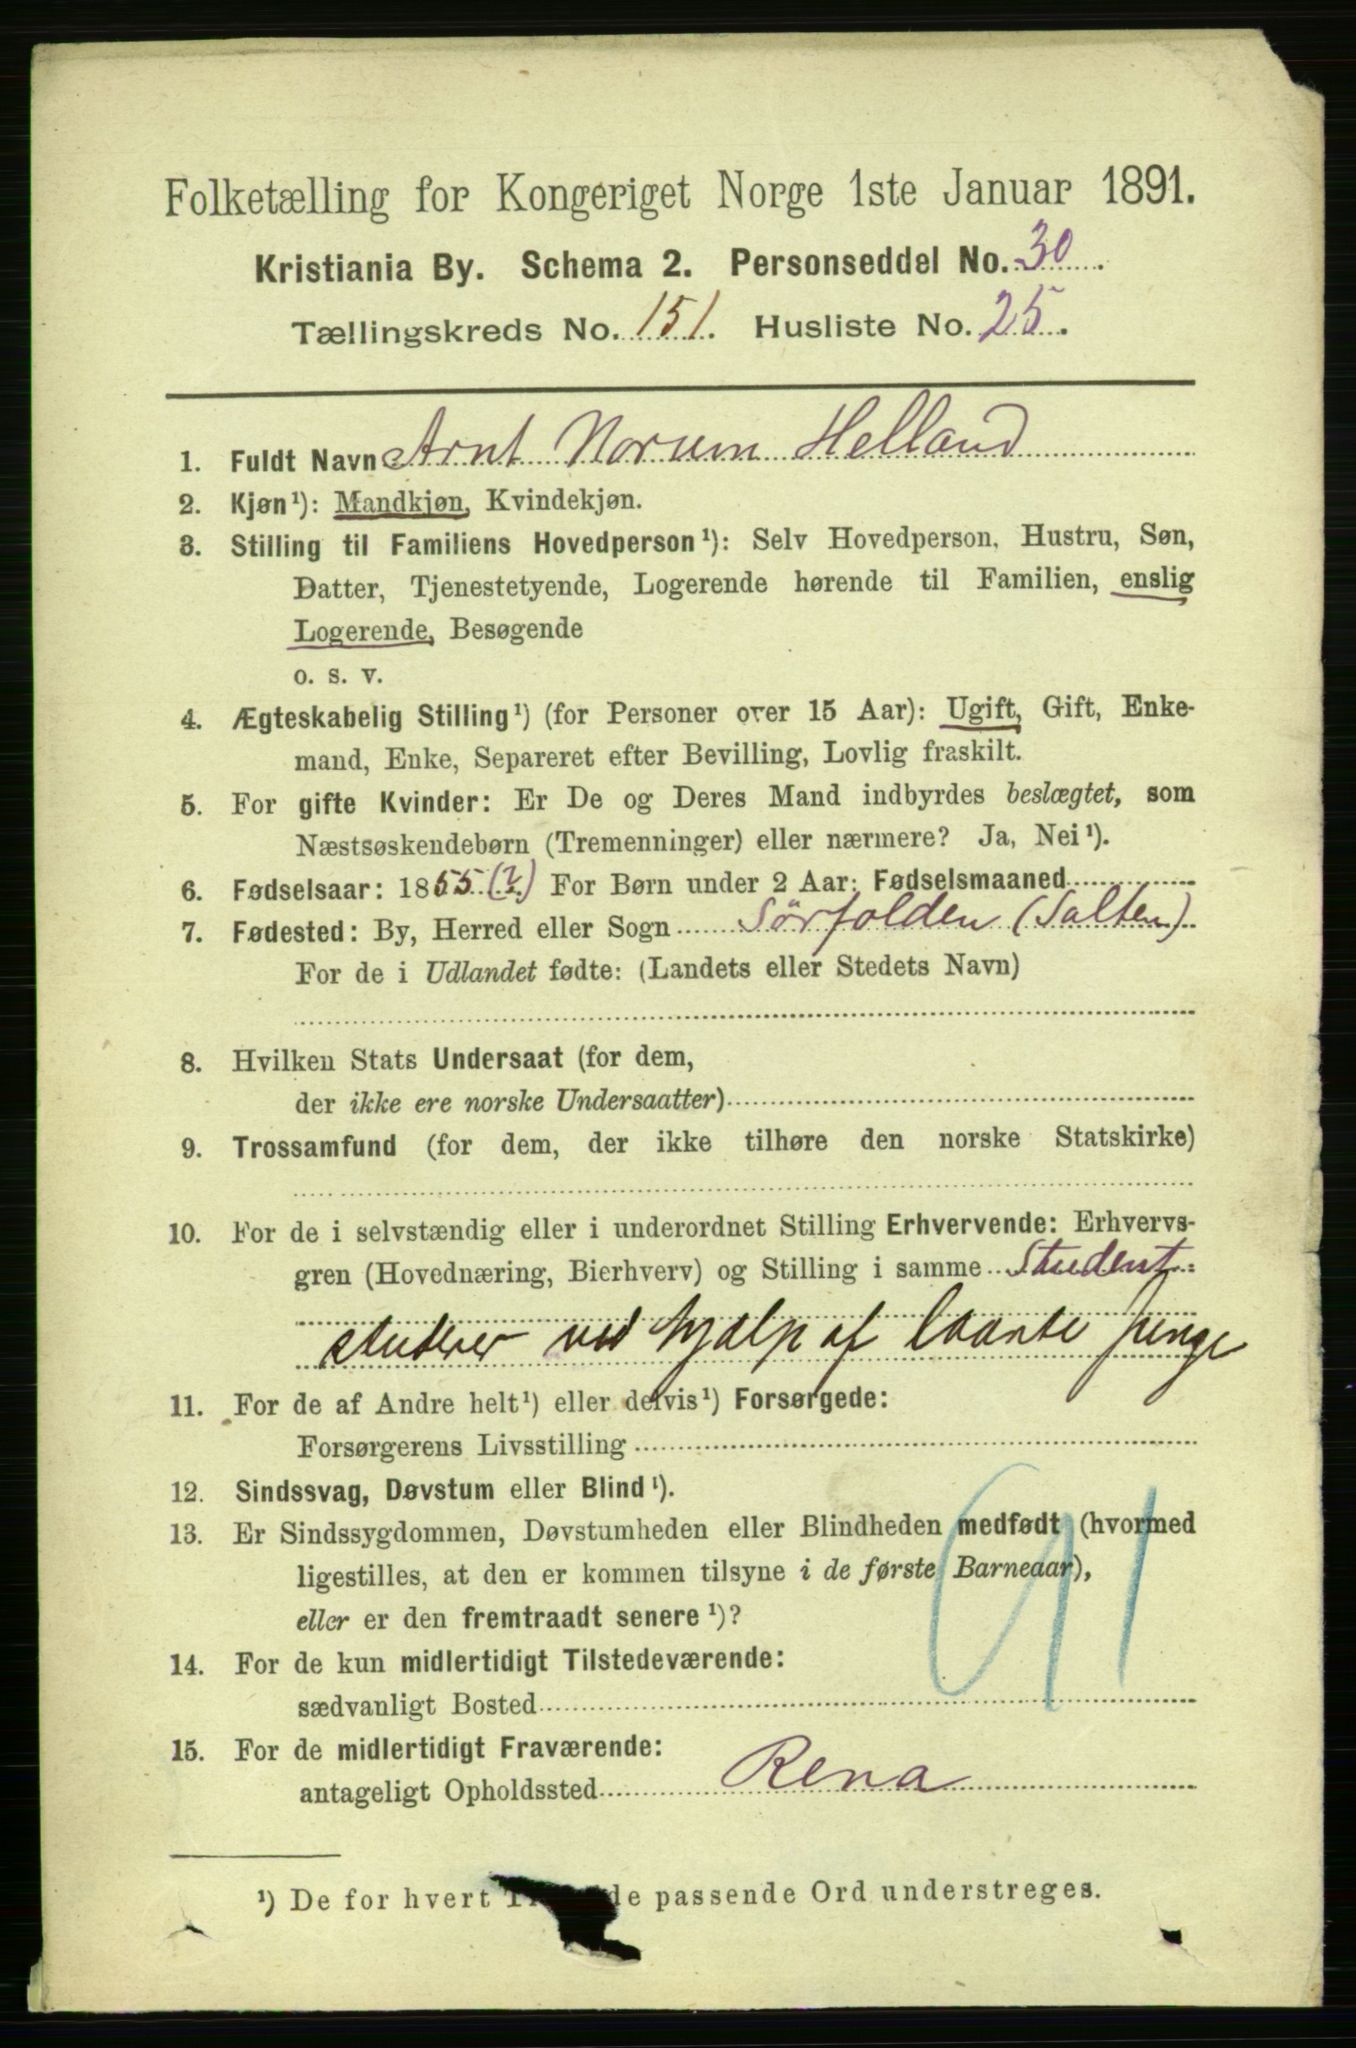 Folketælling for Kongeriget Norge 1ste Januar 1891.
Kristiania By. Schema 2. Personseddel No. 30.
Tællingskreds No. 151. Husliste No. 25.
1. Fuldt Navn Arnt Norum Helland
2. Kjøn¹): Mandkjøn, Kvindekjøn.
3. Stilling til Familiens Hovedperson¹): Selv Hovedperson, Hustru, Søn,
Datter, Tjenestetyende, Logerende hørende til Familien, enslig
Logerende, Besøgende
o. s. v.
4. Ægteskabelig Stilling¹) (for Personer over 15 Aar): Ugift, Gift, Enke-
mand, Enke, Separeret efter Bevilling, Lovlig fraskilt.
5. For gifte Kvinder: Er De og Deres Mand indbyrdes beslægtet, som
Næstsøskendebørn (Tremenninger) eller nærmere? Ja, Nei¹).
6. Fødselsaar: 1855 (?) For Børn under 2 Aar: Fødselsmaaned
7. Fødested: By, Herred eller Sogn Sörfolden (Salten)
For de i Udlandet fødte: (Landets eller Stedets Navn)
8. Hvilken Stats Undersaat (for dem,
der ikke ere norske Undersaatter)
9. Trossamfund (for dem, der ikke tilhøre den norske Statskirke)
10. For de i selvstændig eller i underordnet Stilling Erhvervende: Erhvervs-
gren (Hovednæring, Bierhverv) og Stilling i samme Student
studerer ved hjælp af laante penge
11. For de af Andre helt¹) eller delvis¹) Forsørgede:
Forsørgerens Livsstilling
12. Sindssvag, Døvstum eller Blind¹).
13. Er Sindssygdommen, Døvstumheden eller Blindheden medfødt (hvormed
ligestilles, at den er kommen tilsyne i de første Barneaar),
eller er den fremtraadt senere¹)?
91
14. For de kun midlertidigt Tilstedeværende:
sædvanligt Bosted
15. For de midlertidigt Fraværende:
antageligt Opholdssted Rena
¹) De for hvert passende Ord understreges.